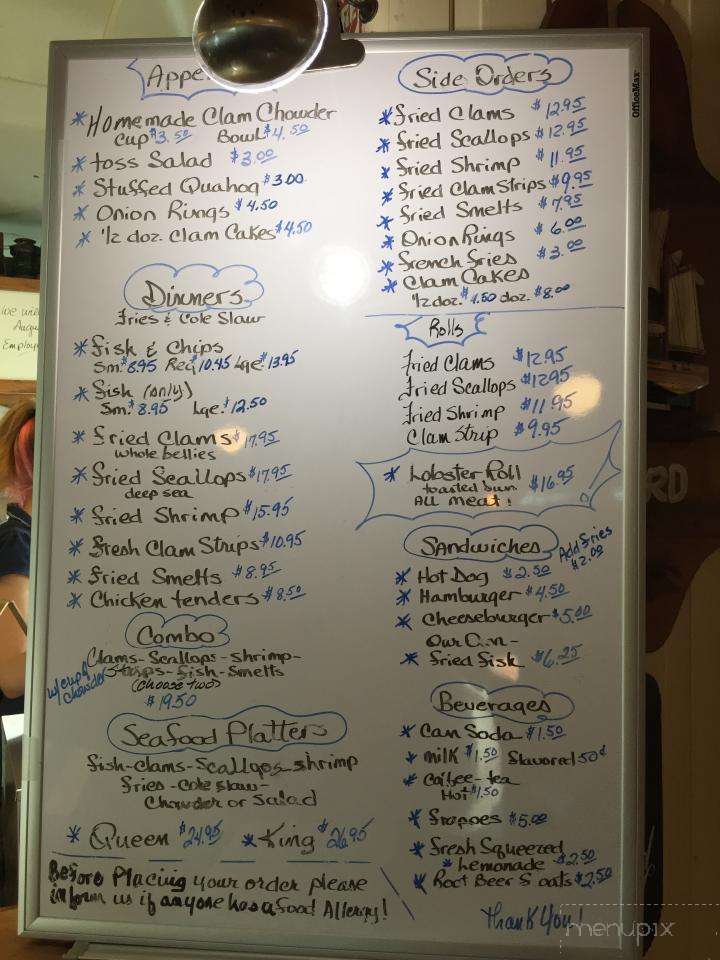 Appe
* Homemade Clam Chowder
Cup $3.50 Bowl $4.50
* toss Salad $3.00
* Stuffed Quahog $3.00
* Onion Rings $4.50
* 1/2 doz. Clam Cakes $4.50
Dinners
Fries & Cole Slaw
* fish & Chips
Sm. $8.95 Reg $10.45 Lge. $13.95
* fish (only)
Sm. $8.95 Lge. $12.50
* fried Clams $17.95
whole bellies
* fried Scallops $17.95
deep sea
* fried Shrimp $15.95
* fresh Clam Strips $10.95
* fried Smelts $8.95
* Chicken tenders $8.50
Combo
Clams - Scallops - shrimp -
Strips - fish - Smelts
(choose two)
$19.50
w/cup chowder
Seafood Platters
fish - clams - Scallops - shrimp
fries - cole slaw -
Chowder or Salad
* Queen $24.95 * King $26.95
Before Placing your order please
inform us if anyone has a food Allergy!
Side Orders
* fried Clams $12.95
* fried Scallops $12.95
* fried Shrimp $11.95
* fried Clam Strips $9.95
* fried Smelts $7.95
* Onion Rings $6.00
* french fries $3.00
* Clam Cakes
1/2 doz. $4.50 doz. $8.00
Rolls
fried Clams $12.95
fried Scallops $12.95
fried Shrimp $11.95
Clam Strip $9.95
* Lobster Roll $16.95
toasted bun
ALL meat!
Sandwiches
Add fries
$2.00
* Hot Dog $2.50
* Hamburger $4.50
* Cheeseburger $5.00
Our Own -
* fried fish $6.25
Beverages
* Can Soda $1.50
* milk $1.50 flavored 50¢
* Coffee - tea
Hot $1.50
* frapoes $5.00
* fresh Squeezed
* Lemonade - $2.50
* Root Beer floats $2.50
Thank You!
OfficeMax
we
Augu
Employ
RD
menupix